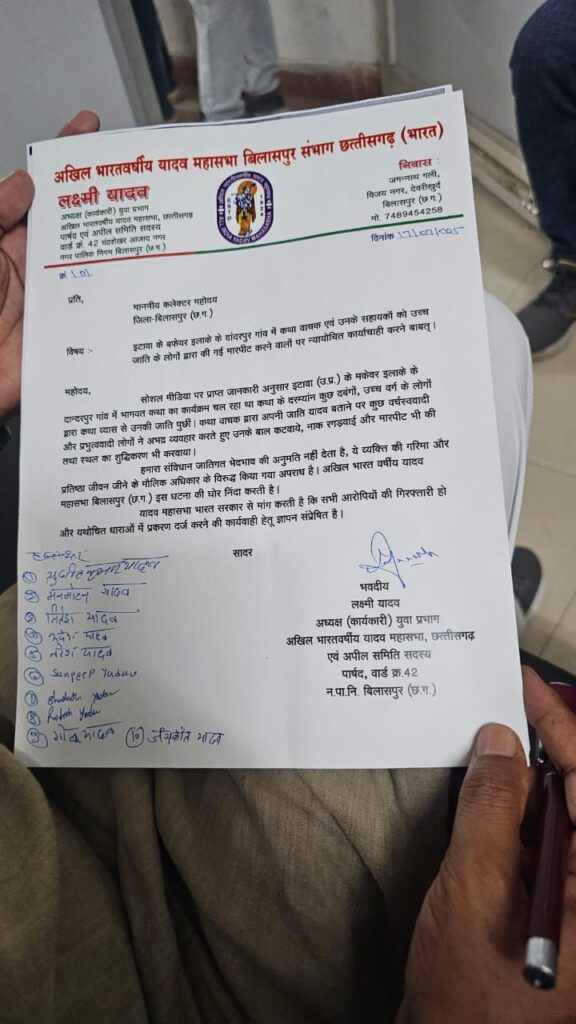 अखिल भारतवर्षीय यादव महासभा बिलासपुर संभाग छत्तीसगढ़ (भारत)
लक्ष्मी यादव
अध्यक्ष (कार्यकारी) युवा प्रभाग
अखिल भारतवर्षीय यादव महासभा, छत्तीसगढ़
पार्षद एवं अपील समिति सदस्य
वार्ड क्रं. 42 चंद्रशेखर आजाद नगर
नगर पालिक निगम बिलासपुर (छ.ग.)
निवास :
जगन्नाथ गली,
विजय नगर, देवरीखुर्द
बिलासपुर (छ.ग.)
मो. 7489454258
दिनांक
प्रति,
माननीय कलेक्टर महोदय
जिला-बिलासपुर (छ.ग.)
विषय :- इटावा के बफेयर इलाके के दांदरपुर गांव में कथा वाचक एवं उनके सहायकों को उच्च
जाति के लोगों द्वारा की गई मारपीट करने वालों पर न्यायोचित कार्यवाही करने बाबत्।
महोदय,
सोशल मीडिया पर प्राप्त जानकारी अनुसार इटावा (उ.प्र.) के मकेवर इलाके के
दान्दरपुर गांव में भागवत कथा का कार्यक्रम चल रहा था कथा के दरम्यांन कुछ दबंगों, उच्च वर्ग के लोगों
द्वारा कथा व्यास से उनकी जाति पुछीं। कथा वाचक द्वारा अपनी जाति यादव बताने पर कुछ वर्चस्ववादी
और प्रभुत्ववादी लोगों ने अभद्र व्यवहार करते हुए उनके बाल कटवाये, नाक रगड़वाई और मारपीट भी की
तथा स्थल का शुद्धिकरण भी करवाया।
हमारा संविधान जातिगत भेदभाव की अनुमति नहीं देता है, ये व्यक्ति की गरिमा और
प्रतिष्ठा जीवन जीने के मौलिक अधिकार के विरुद्ध किया गया अपराध है। अखिल भारत वर्षीय यादव
महासभा बिलासपुर (छ.ग.) इस घटना की घोर निंदा करती है।
यादव महासभा भारत सरकार से मांग करती है कि सभी आरोपियों की गिरफ्तारी हो
और यथोचित धाराओं में प्रकरण दर्ज करने की कार्यवाही हेतू ज्ञापन संप्रेषित है।
सादर
भवदीय
लक्ष्मी यादव
अध्यक्ष (कार्यकारी) युवा प्रभाग
अखिल भारतवर्षीय यादव महासभा, छत्तीसगढ़
एवं अपील समिति सदस्य
पार्षद, वार्ड क्र.42
न.पा.नि. बिलासपुर (छ.ग.)
हस्ताक्षर
① कुमार यादव
② मनमोहन यादव
③ यादव
④ यादव
⑤ नरेश यादव
⑥ Sandeep Yadav
⑦ Yadav
⑧ Yadav
⑨ यादव ⑩ यादव